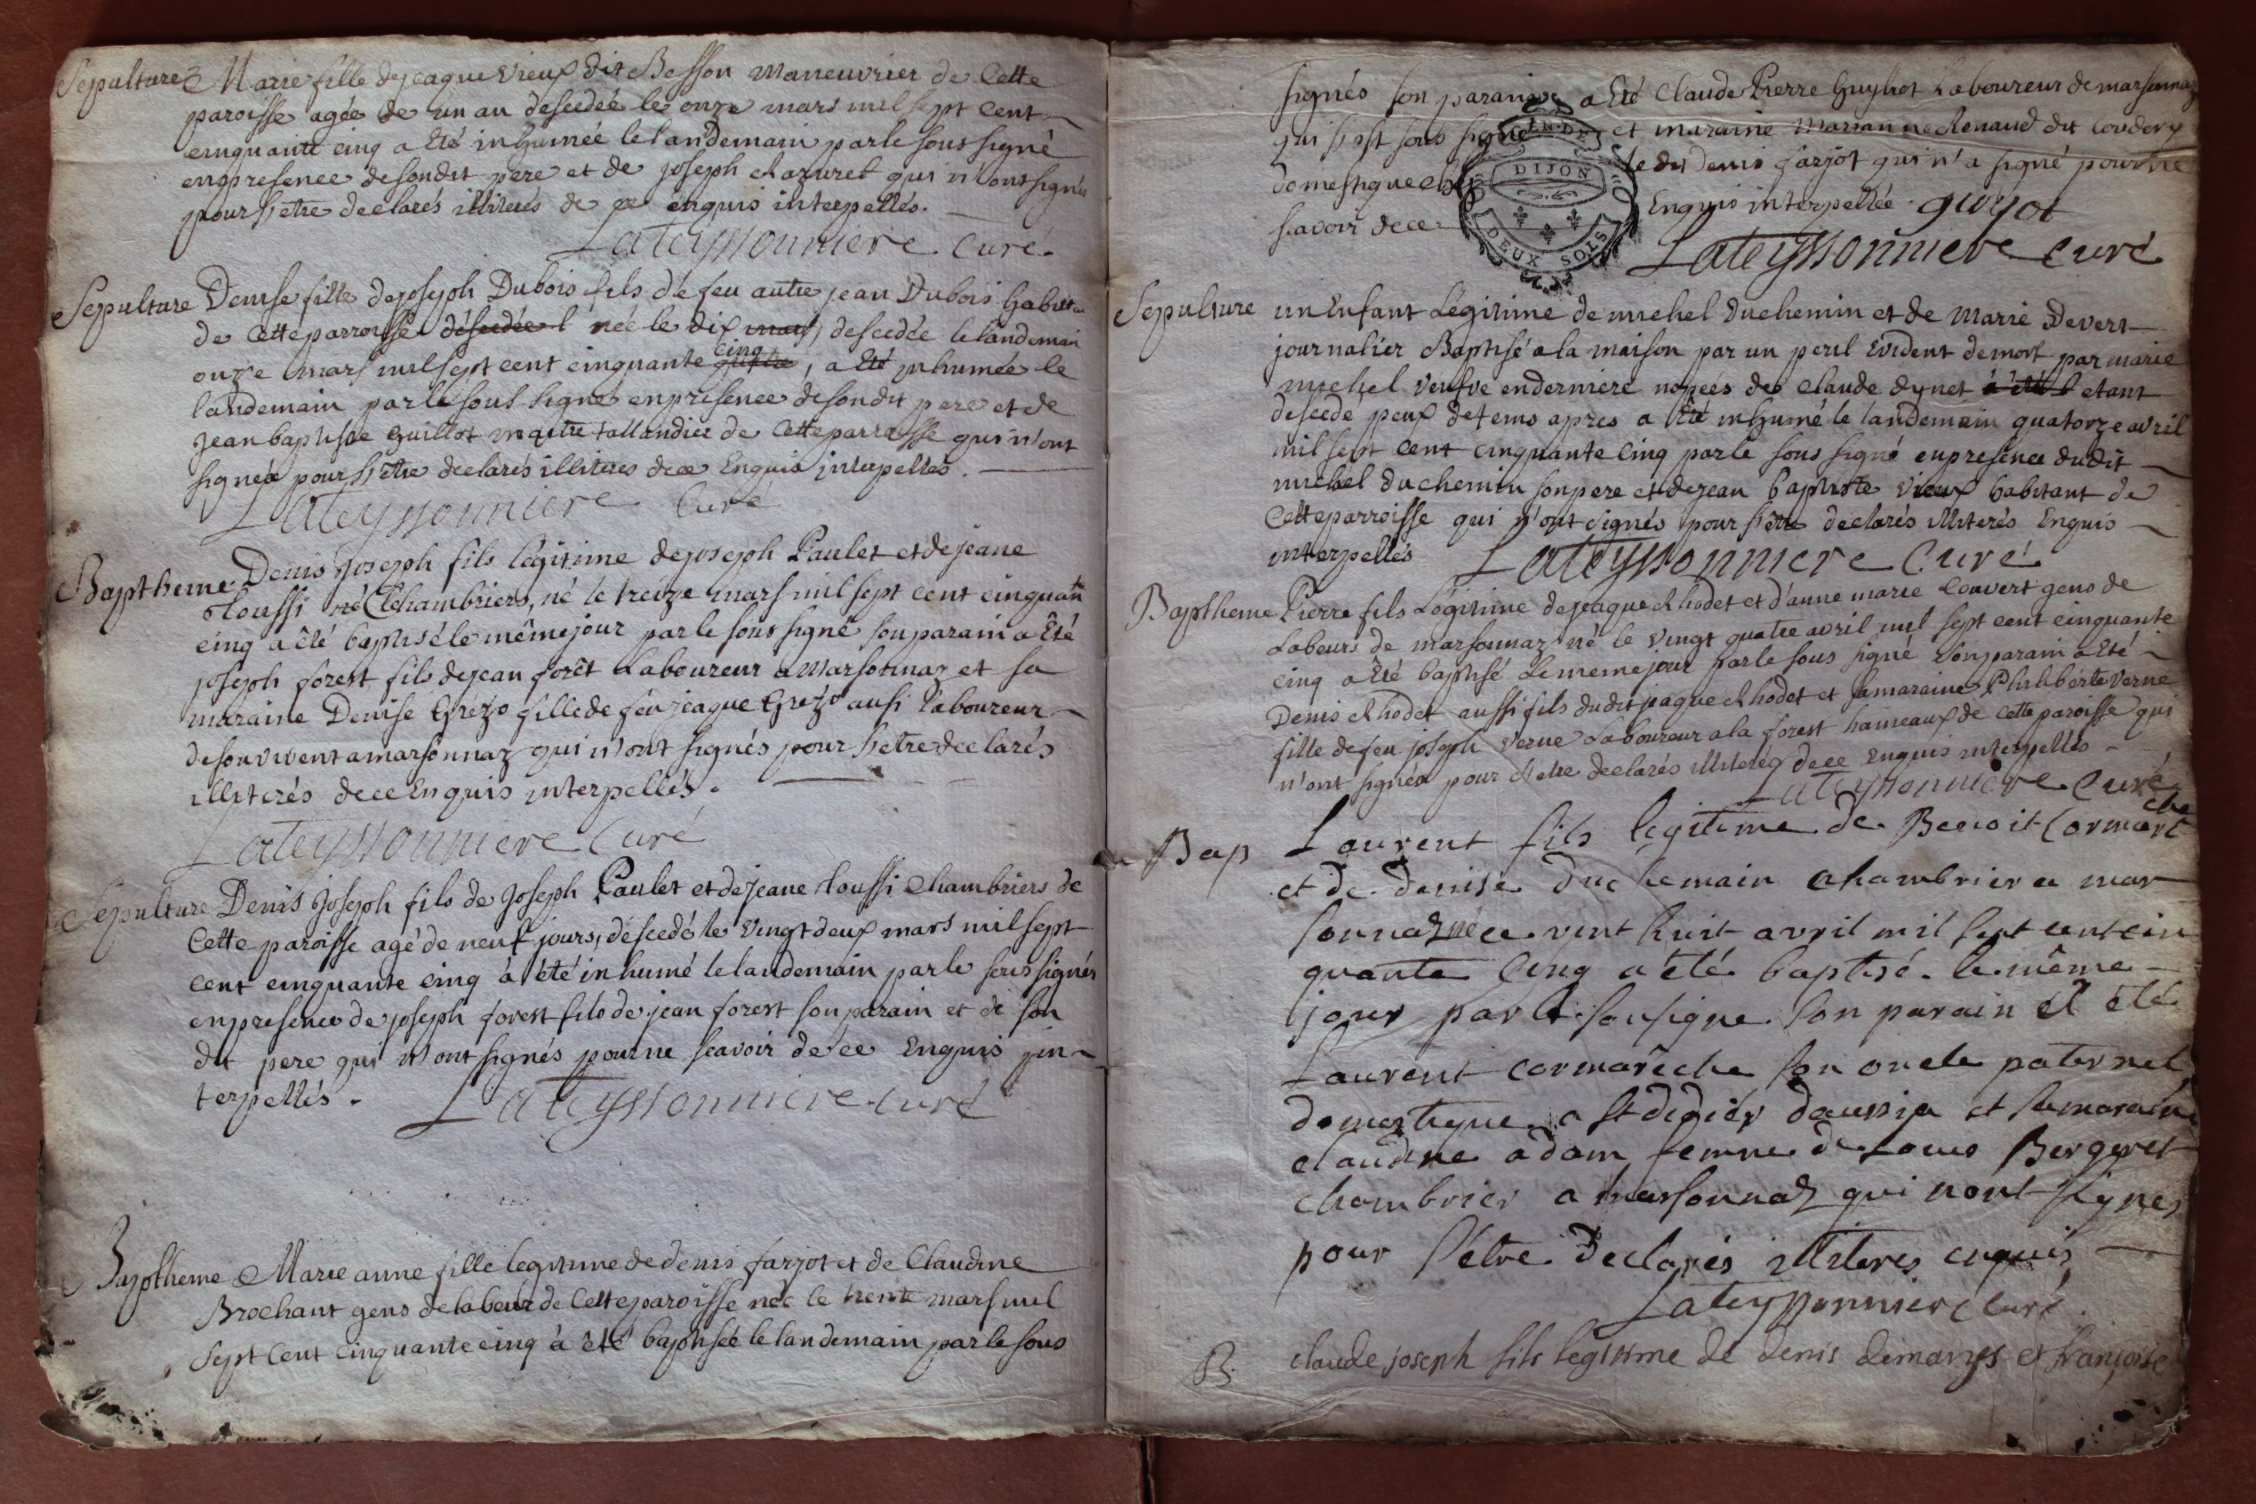 Sepulture Marie fille de jcaque vieux dit Besson Maneuvrier de Cette
paroisse agée de un an descedée le onze mars mil sept cent
cinquante cinq a Eté inhumée le landemain par le sous signé
en presence de sondit pere et de joseph chazuret qui n'ont signés
pour s'etre declarés illiterés de ce enquis interpellés.
Lateyssonniere Curé.
Sepulture Denise fille de joseph Dubois fils de feu autre jean Dubois habita
de Cette parroisse descedée l née le dix mars, descedée le landemain
onze mars mil sept cent cinquante cinq, a Eté inhumée le
landemain par le sous signé en presence de sondit pere et de
jean baptiste Guillot maitre tallandier de Cette parroisse qui n'ont
signés pour s'etre declarés illiteres de ce Enquis interpelles.
Lateyssonniere Curé
Baptheme Denis joseph fils légitime de joseph Paulet et de jeane
Toussi né Chambriers, né le treize mars mil sept cent cinquante
cinq a êté baptisé le même jour par le sous signé son parain a Eté
joseph forest fils de jean forêt Laboureur a Marsonnaz et sa
maraine Denise Grézo fille de feu jcaque Grézo ausi laboureur
de son vivent a marsonnaz qui n'ont signés pour s'etre declarés
illiterés de ce Enquis interpellés.
Lateyssonniere Curé
Sepulture Denis joseph fils de joseph Paulet et de jeane Toussi Chambriers de
Cette paroisse agé de neuf jours, descedé le vingt deux mars mil sept
cent cinquante cinq à été inhumé le landemain par le sous signés
en presence de joseph forest fils de jean forest son parain et de son
dit pere qui n'ont signés pour ne scavoir de ce Enquis in-
terpellés.
Lateyssonniere curé
Baptheme Marie anne fille legitime de denis farjot et de Claudine
Brochant gens de labeur de Cette paroisse née le trente mars mil
sept cent cinquante cinq à eté baptisée le landemain par le sous
signés son parain a Eté Claude Pierre Guyhot Laboureur de marsonnaz
qui s'est sous signé et maraine Marianne Renaud du
domestique le dit Denis farjot qui n'a signé pour ne
savoir de ce Enquis interpellée. guyot
DIJON
DEUX SOLS
Lateyssonniere curé
Sepulture un Enfant Légitime de michel duchemin et de Marie Devert
journalier Baptisé a la maison par un peril Evident de mort par marie
michel veufve en derniere nopces de claude dynet a été l etant
descede peux de tems apres a Eté inhumé le landemain quatorze avril
mil sept cent cinquante cinq par le sous signé en presence dudit
michel duchemin son pere et de jean baptiste vieux habitant de
Cette parroisse qui n'ont signés pour s'etre declarés illiterés Enquis
interpellés Lateyssonniere Curé
Baptheme Pierre fils Légitime de jcaque Rhodet et d'anne marie Convert gens de
Labeurs de marsonnaz né le vingt quatre avril mil sept cent cinquante
cinq a Eté baptisé Le meme jour par le sous signé son parain a Eté
Denis Rhodet aussi fils dudit jcaque Rhodet et sa maraine Philiberte verne
fille de feu joseph verne Laboureur a la forest hameaux de cette paroisse qui
n'ont signés pour s'etre declarés illiterés de ce Enquis interpellés
Lateyssonniere Curé
Bap Laurent fils legitime de Benoit Cormareche
et de denise duchemain chambrier a mar
sonnaz né ce vent huit avril mil sept cent cin
quante Cinq a été baptisé le même
jour par le sousigne son parain a été
Laurent cormarêche son oncle paternel
domestique a st didier d'aussia et sa maraine
claudine adam femme de Louis Bergeret
chambrier a marsonnaz qui nont signes
pour s'étre declarés illiteres enquis
Lateyssonniere Curé.
B. claude joseph fils legitime de denis demarys et françoise